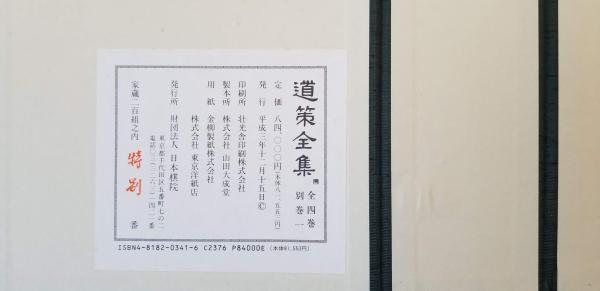 道策全集 全四巻 別巻一
定価 八四、〇〇〇円(本体八一、五五三円)
発行 平成三年十二月十五日©
印刷所 壮光舎印刷株式会社
製本所 株式会社 山田大成堂
用紙 金柳製紙株式会社
株式会社 東京洋紙店
発行所 財団法人 日本棋院
東京都千代田区五番町七の二
家蔵二百組之内 特別 番
ISBN4-8182-0341-6 C2376 P84000E (本体81,553円)